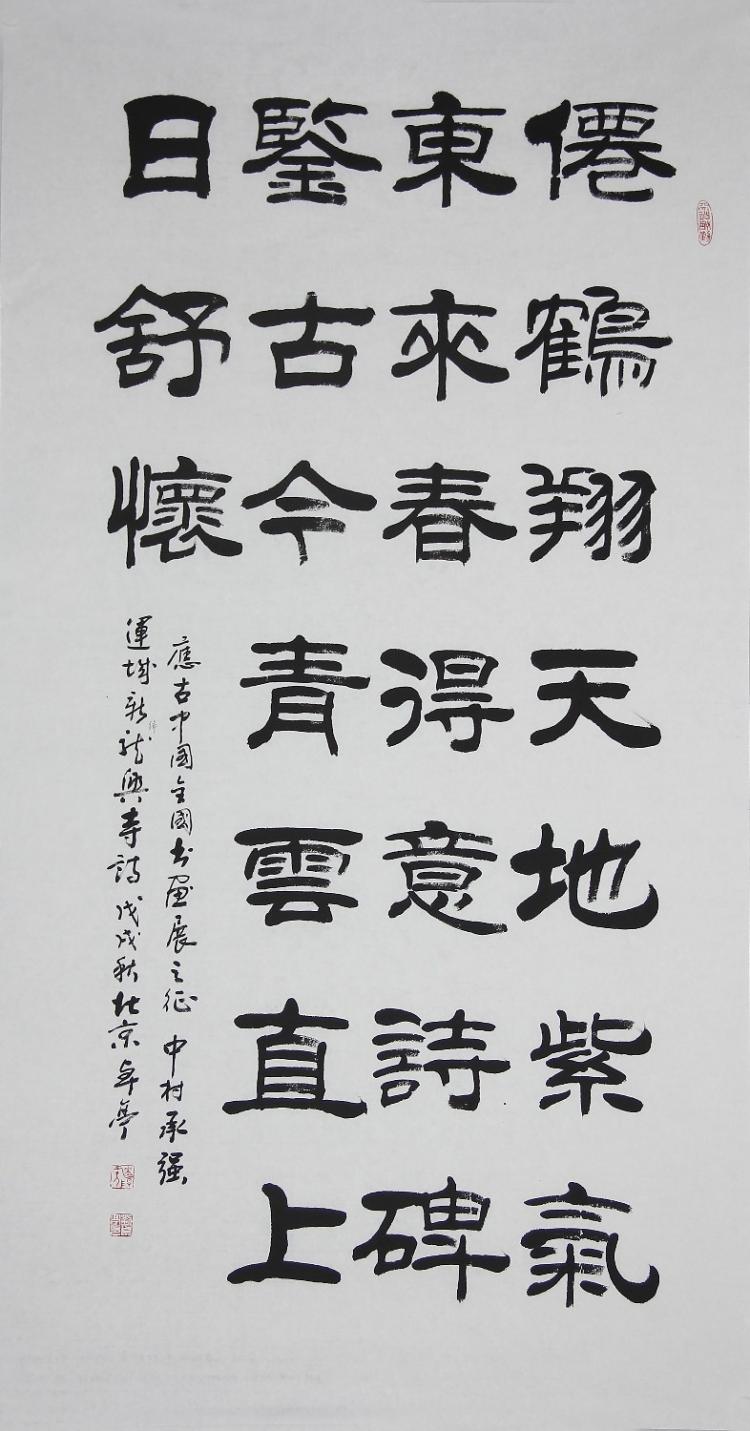 僊鶴翔天地紫氣
東來春得意詩碑
鑒古今青雲直上
日舒懷
應古中國全國书画展之征 中村承强
運城新龍興寺詩戊戌秋北京